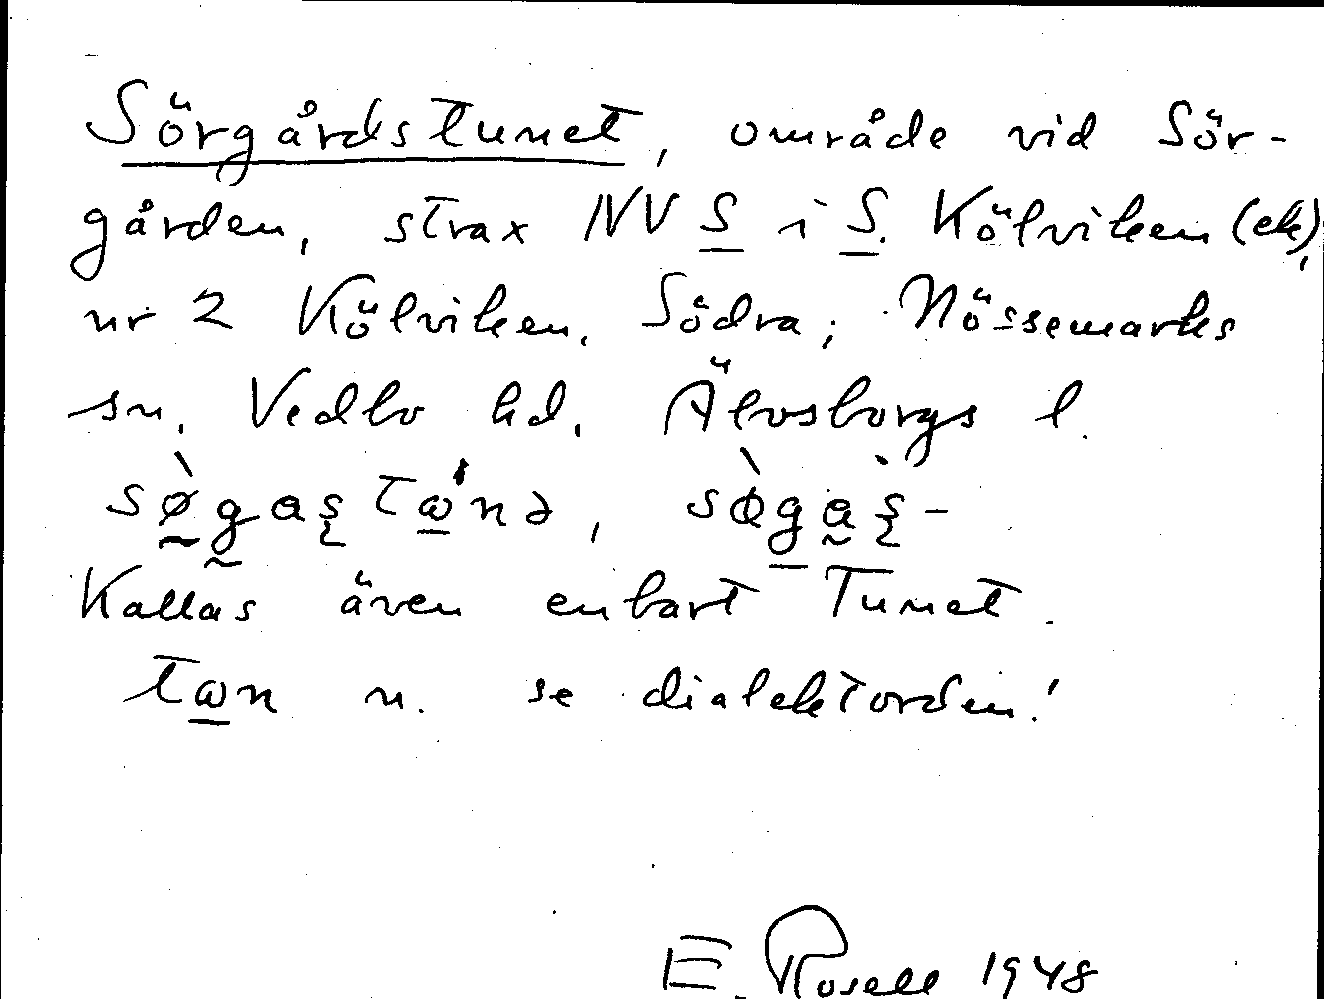 Sörgårdstunet, område vid Sör-
gården, strax NV S i S. Kölviken (ek),
nr 2 Kölviken, Södra; Nössemarks
sn, Vedbo hd, Älvsborgs l.
sø̀gas̨ tωʹnə, sø̀gas̨-
Kallas även enbart Tunet.
tωn n. se dialektorden!
E. Rosell 1948